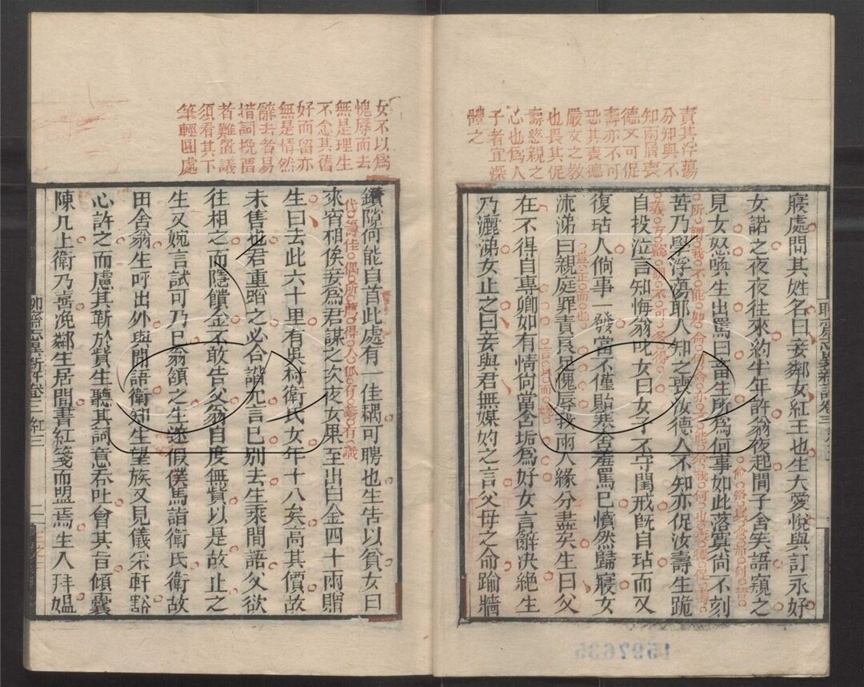 責其浮蕩
分知與不
知兩層喪
德又可促
壽亦不可
恐其喪德
嚴父之教
也畏其促
壽慈親之
心也為人
子者宜深
體之
寢處問其姓名曰妾鄰女紅玉也生大愛悅與訂永好
女諾之夜夜往來約半年許翁夜起聞子舍笑語窺之
見女怒喚生出罵曰畜生所為何事如此落寞尚不刻
苦乃學浮蕩耶人知之喪汝德人不知亦促汝壽生跪
自投泣言知悔翁叱女曰女子不守閨戒既自玷而又
復玷人倘事一發當不僅貽寒舍羞罵已憤然歸寢女
流涕曰親庭罪責良足愧辱我兩人緣分盡矣生曰父
在不得自專卿如有情尚當含垢為好女言辭決絕生
乃灑涕女止之曰妾與君無媒妁之言父母之命踰牆
女不以為
愧辱而去
無是理生
不念其舊
好而留亦
無是情然
辭去者易
措詞挽留
者難置議
須看其下
筆輕圓處
鑽隙何能白首此處有一佳耦可聘也生告以貧女曰
來宵相俟妾為君謀之次夜女果至出白金四十兩贈
生曰去此六十里有吳村衛氏女年十八矣高其價故
未售也君重啗之必合諧允言已別去生乘間語父欲
往相之而隱饋金不敢告父翁自度無貲以是故止之
生又婉言試可乃已翁頷之生遂假僕馬詣衛氏衛故
田舍翁生呼出外與閒語衛知生望族又見儀采軒豁
心許之而慮其靳於貲生聽其詞意吞吐會其旨傾囊
陳几上衛乃喜浼鄰生居間書紅箋而盟焉生入拜媼